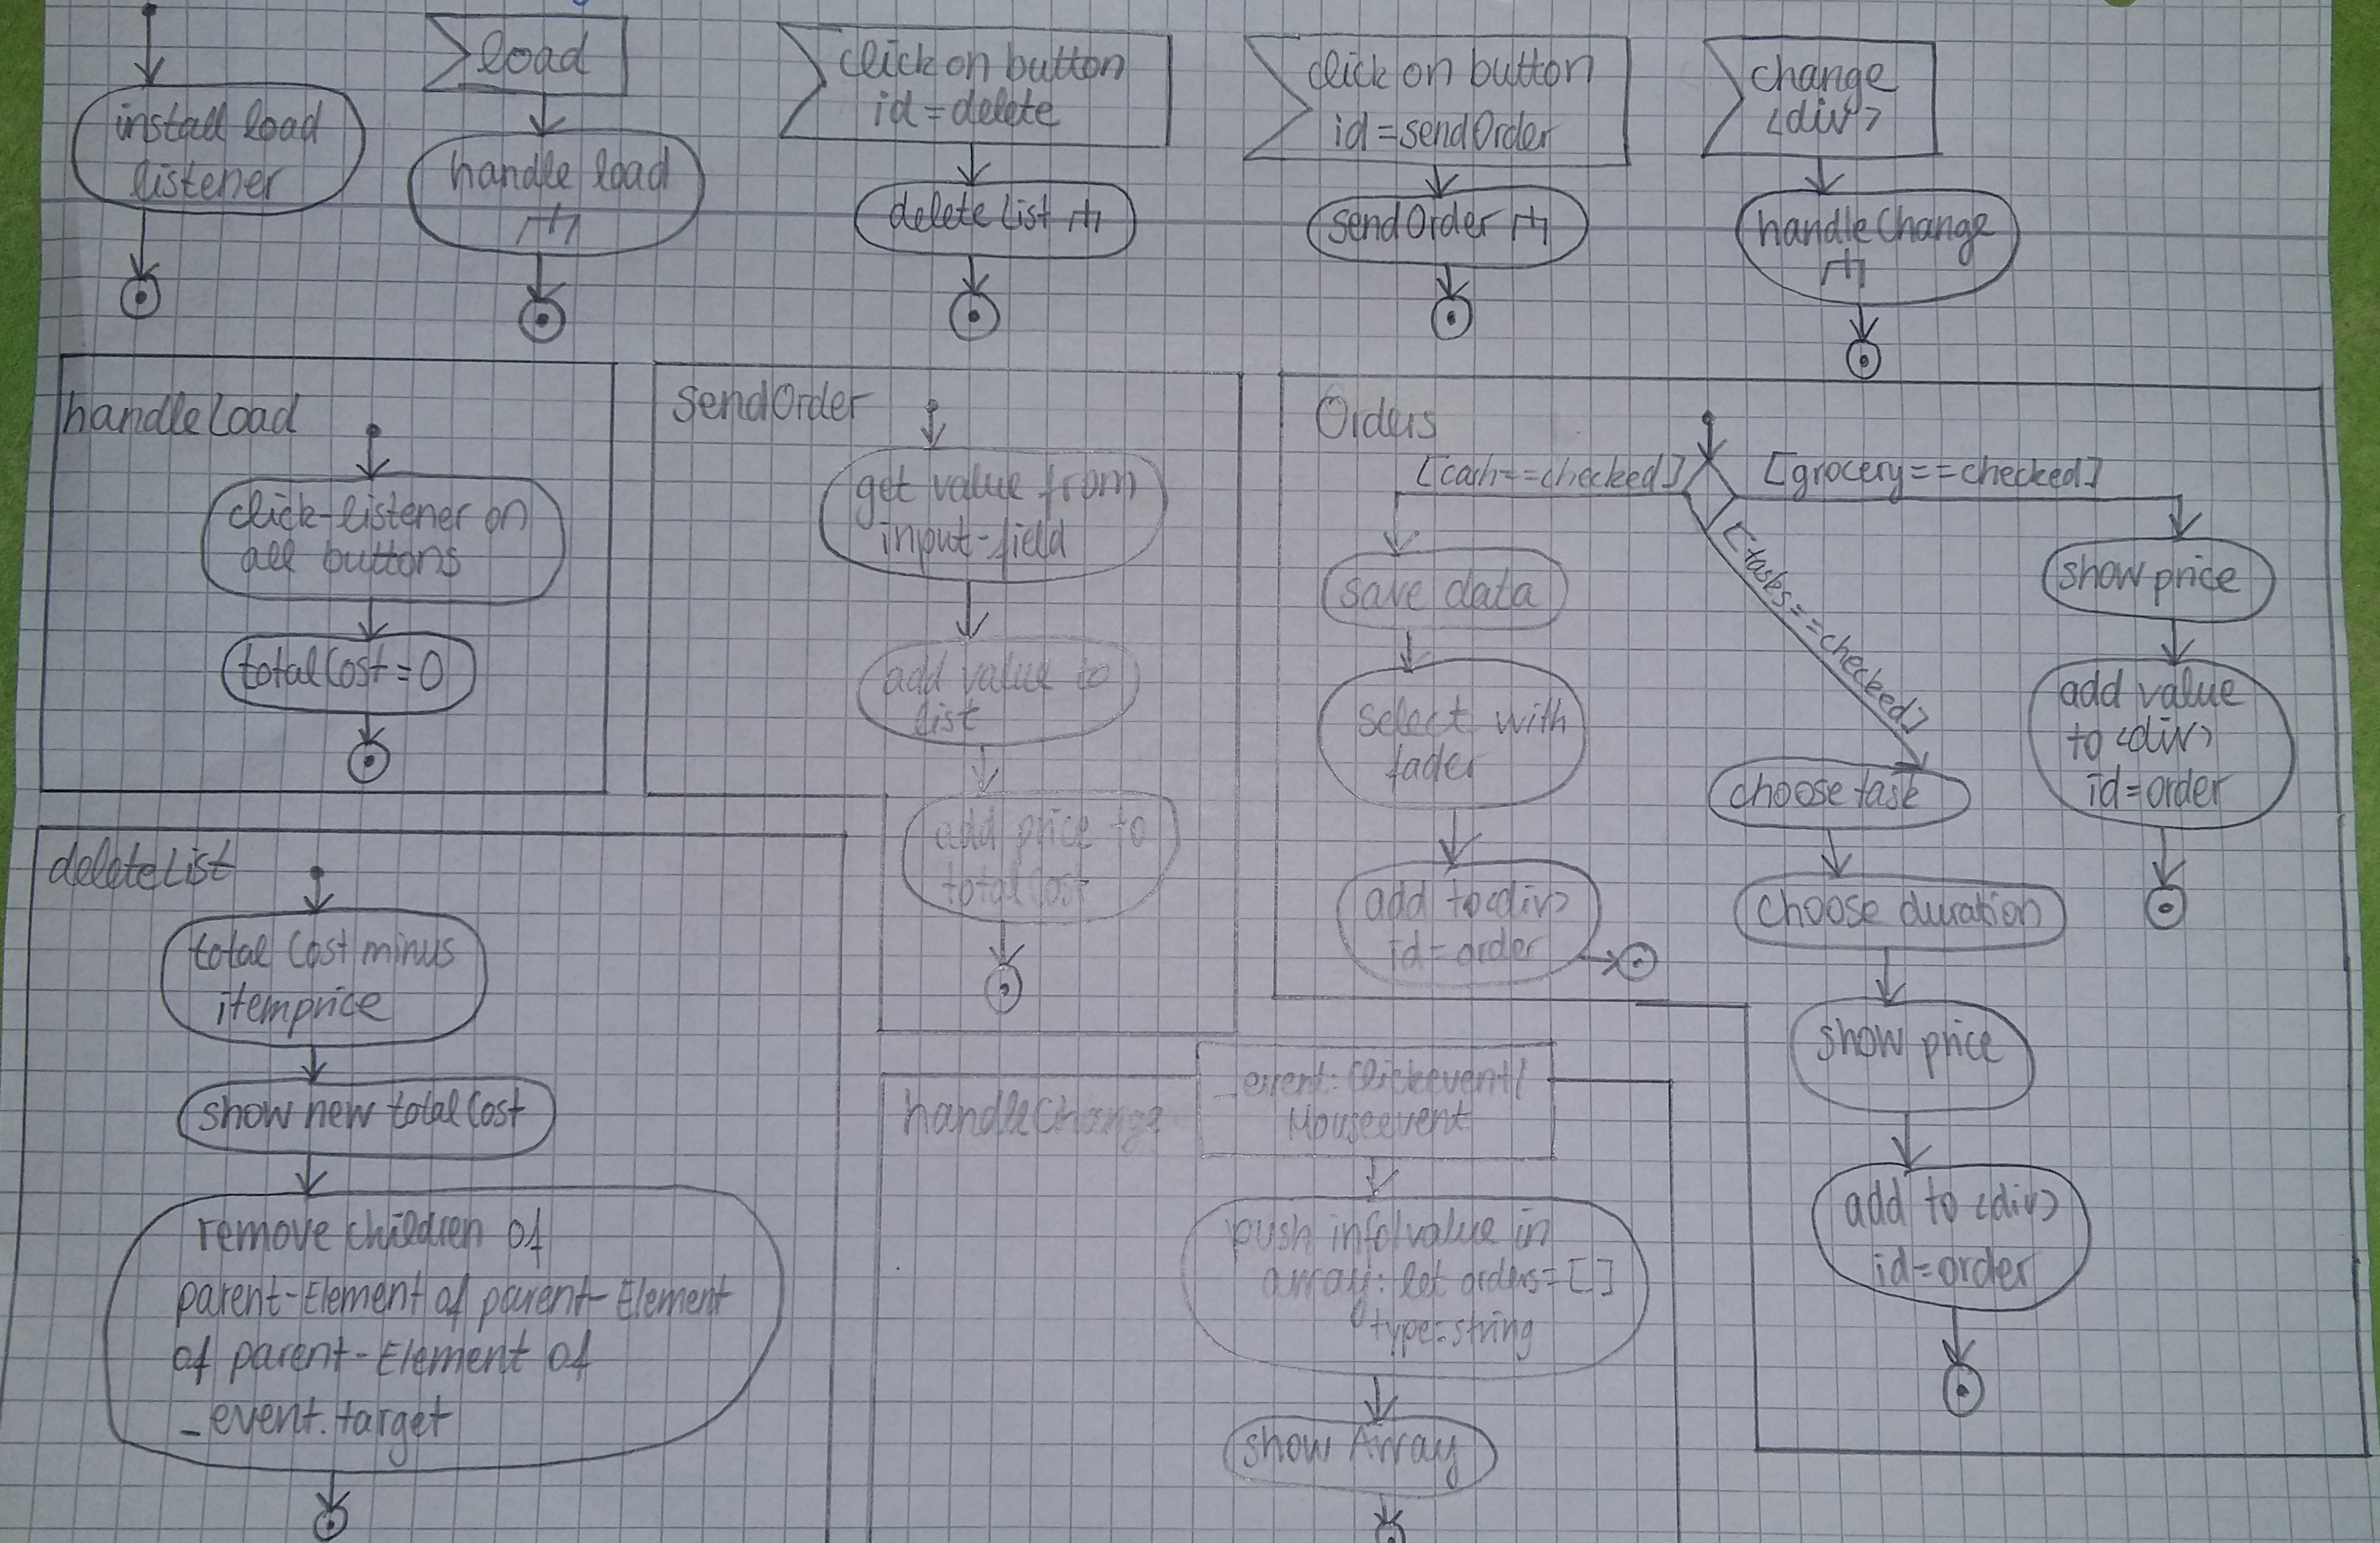 install load
listener
load
handle load
click on button
id=delete
deleteList
click on button
id=sendOrder
sendOrder
change
<div>
handleChange
handleLoad
click-listener on
all buttons
totalCost=0
sendOrder
get value from
input-field
add value to
list
add price to
totalCost
Orders
[cash==checked]
[grocery==checked]
[tasks==checked]
save data
select with
fader
add to<div>
id=order
choose task
choose duration
show price
add to <div>
id=order
show price
add value
to <div>
id=order
deleteList
total Cost minus
itemprice
show new totalCost
remove children of
parent-Element of parent-Element
of parent-Element of
_event.target
handleChange
_event: Clickevent/
Mouseevent
push info/value in
array: let orders=[]
type:string
show Array